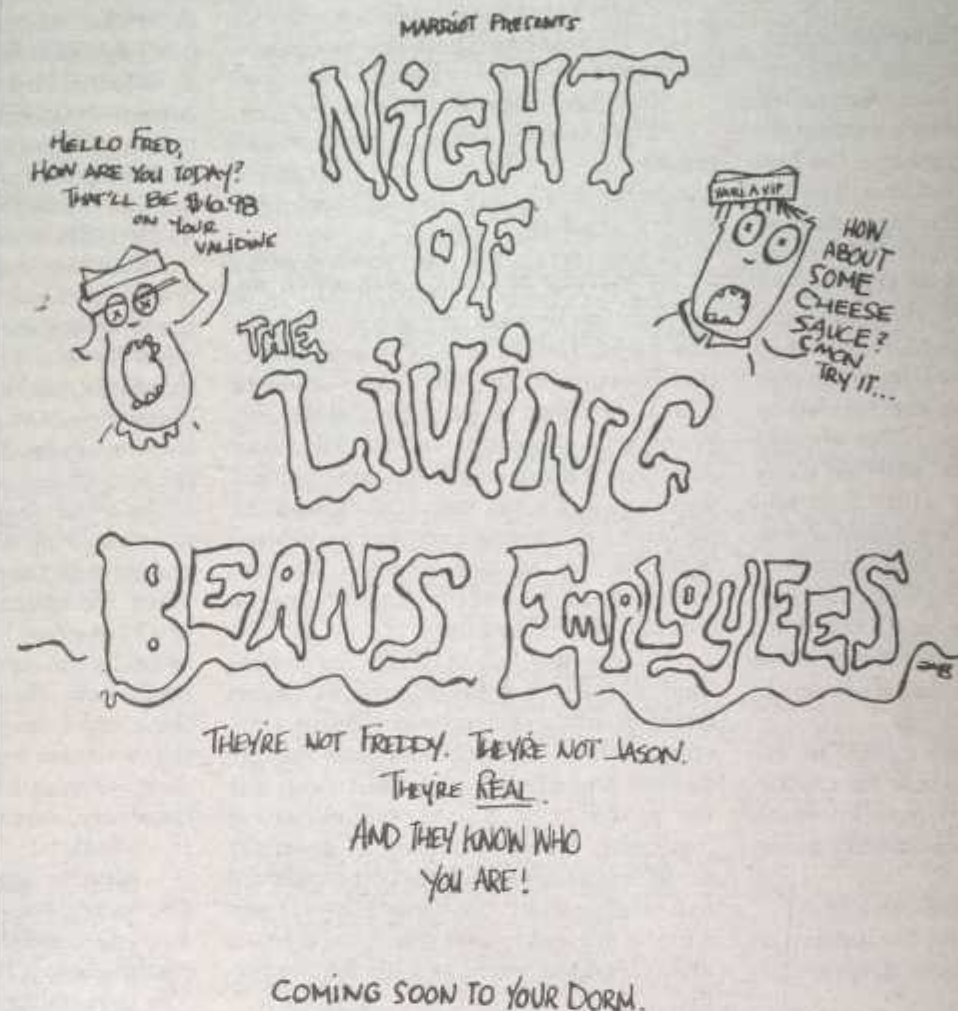 MARRIOT PRESENTS
NiGHT
OF
THE
LiViNG
BEANS EMPLOYEES
HELLO FRED,
HOW ARE YOU TODAY?
THAT'LL BE $6.98
ON YOUR
VALIDINE
HOW
ABOUT
SOME
CHEESE
SAUCE?
C'MON
TRY IT...
THEY'RE NOT FREDDY. THEY'RE NOT JASON.
THEY'RE REAL.
AND THEY KNOW WHO
YOU ARE!
COMING SOON TO YOUR DORM.